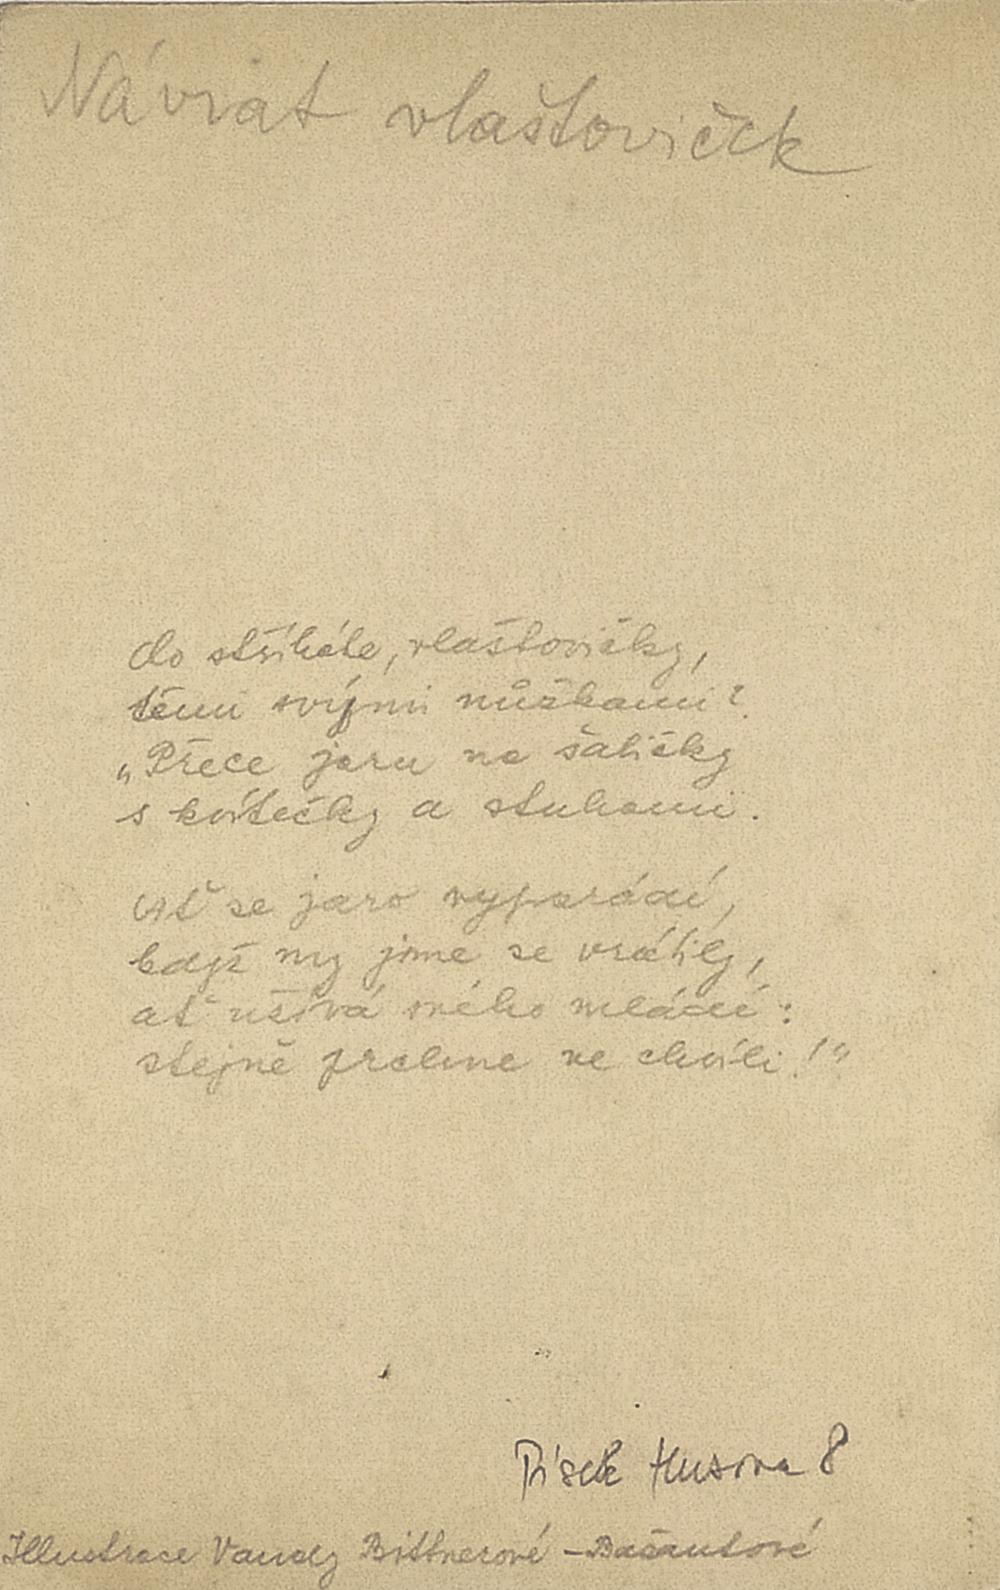 Návrat vlaštoviček
Co stříháte, vlaštovičky,
těmi svými nůžkami?
„Přece jaru na šatičky
s kvítečky a stuhami.
Ať se jaro vyparádí,
když my jsme se vrátily,
ať užívá svého mládí:
stejně prchne ve chvíli!"
Písek Husova 8
Illustrace Vandy Bittnerové – Bažantové